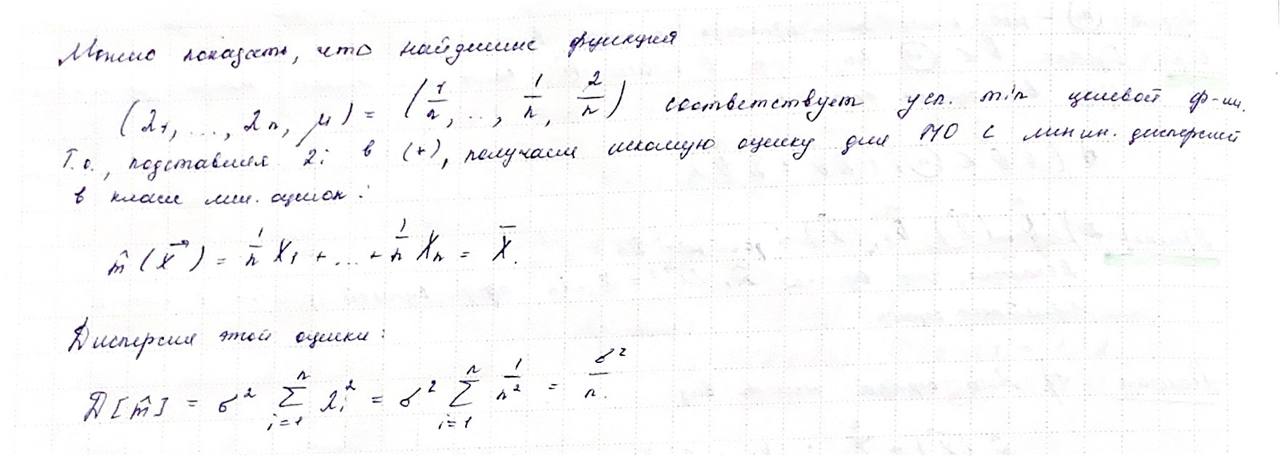 Можно показать, что найденные функция
(λ₁, ..., λₙ, μ) = (1/n, ..., 1/n, 2/n) соответствует усл. min целевой ф-ии.
Т.о., подставляя λᵢ в (*), получаем искомую оценку для МО с миним. дисперсией
в классе лин. оценок:
m̂(X⃗) = 1/n X₁ + ... + 1/n Xₙ = X̄.
Дисперсия этой оценки:
D[m̂] = σ² Σᵢ₌₁ⁿ λᵢ² = σ² Σᵢ₌₁ⁿ 1/n² = σ²/n.